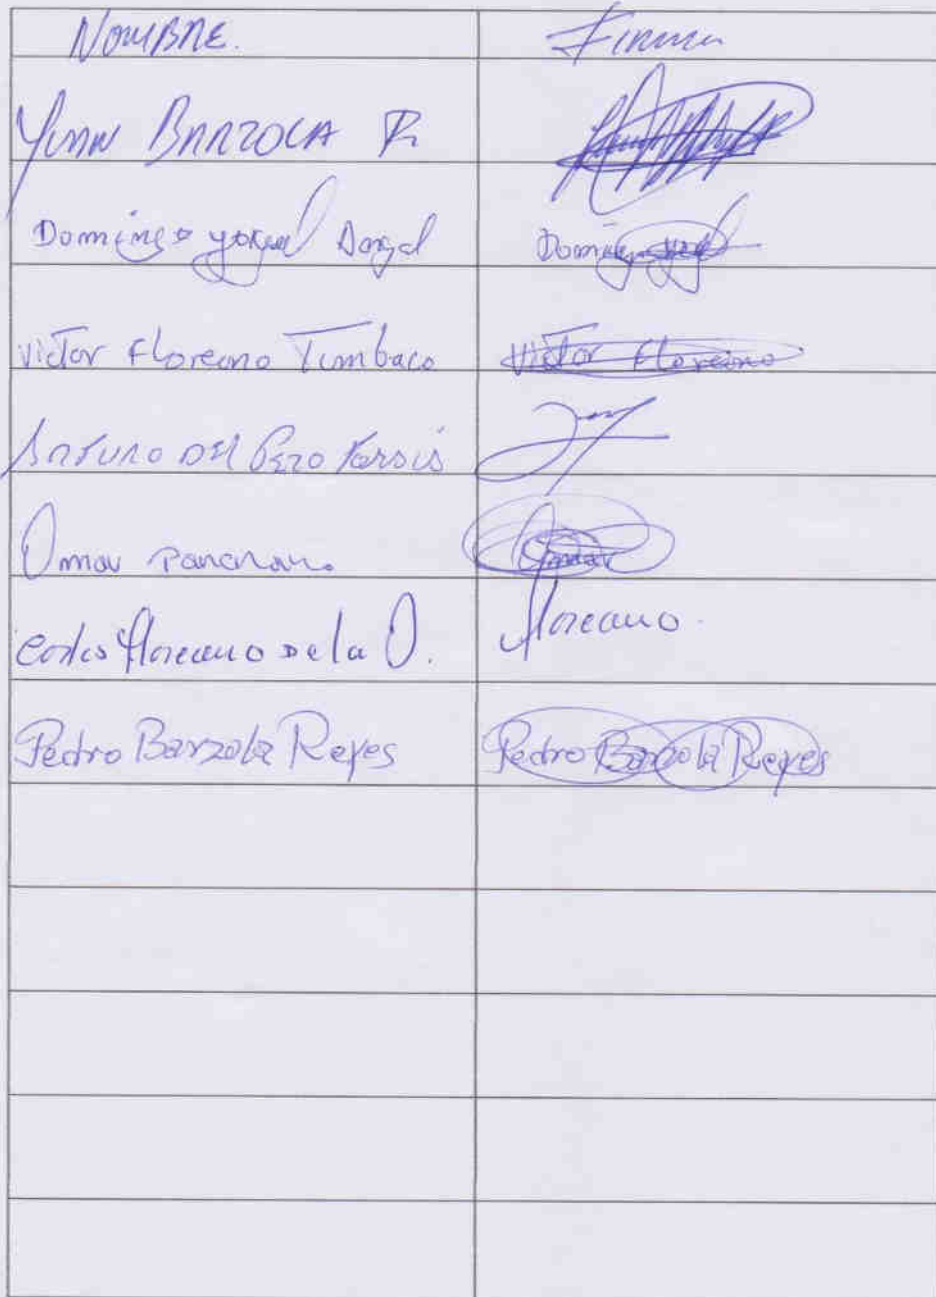 NOMBRE. Firma
Yuan BARZOLA R
Domingo Domingo
Victor Floreano Tumbaco Victor Floreano
Arturo Del Pezo
Omar Omar
Carlos Floreano De la O. Floreano.
Pedro Barzola Reyes Pedro Barzola Reyes